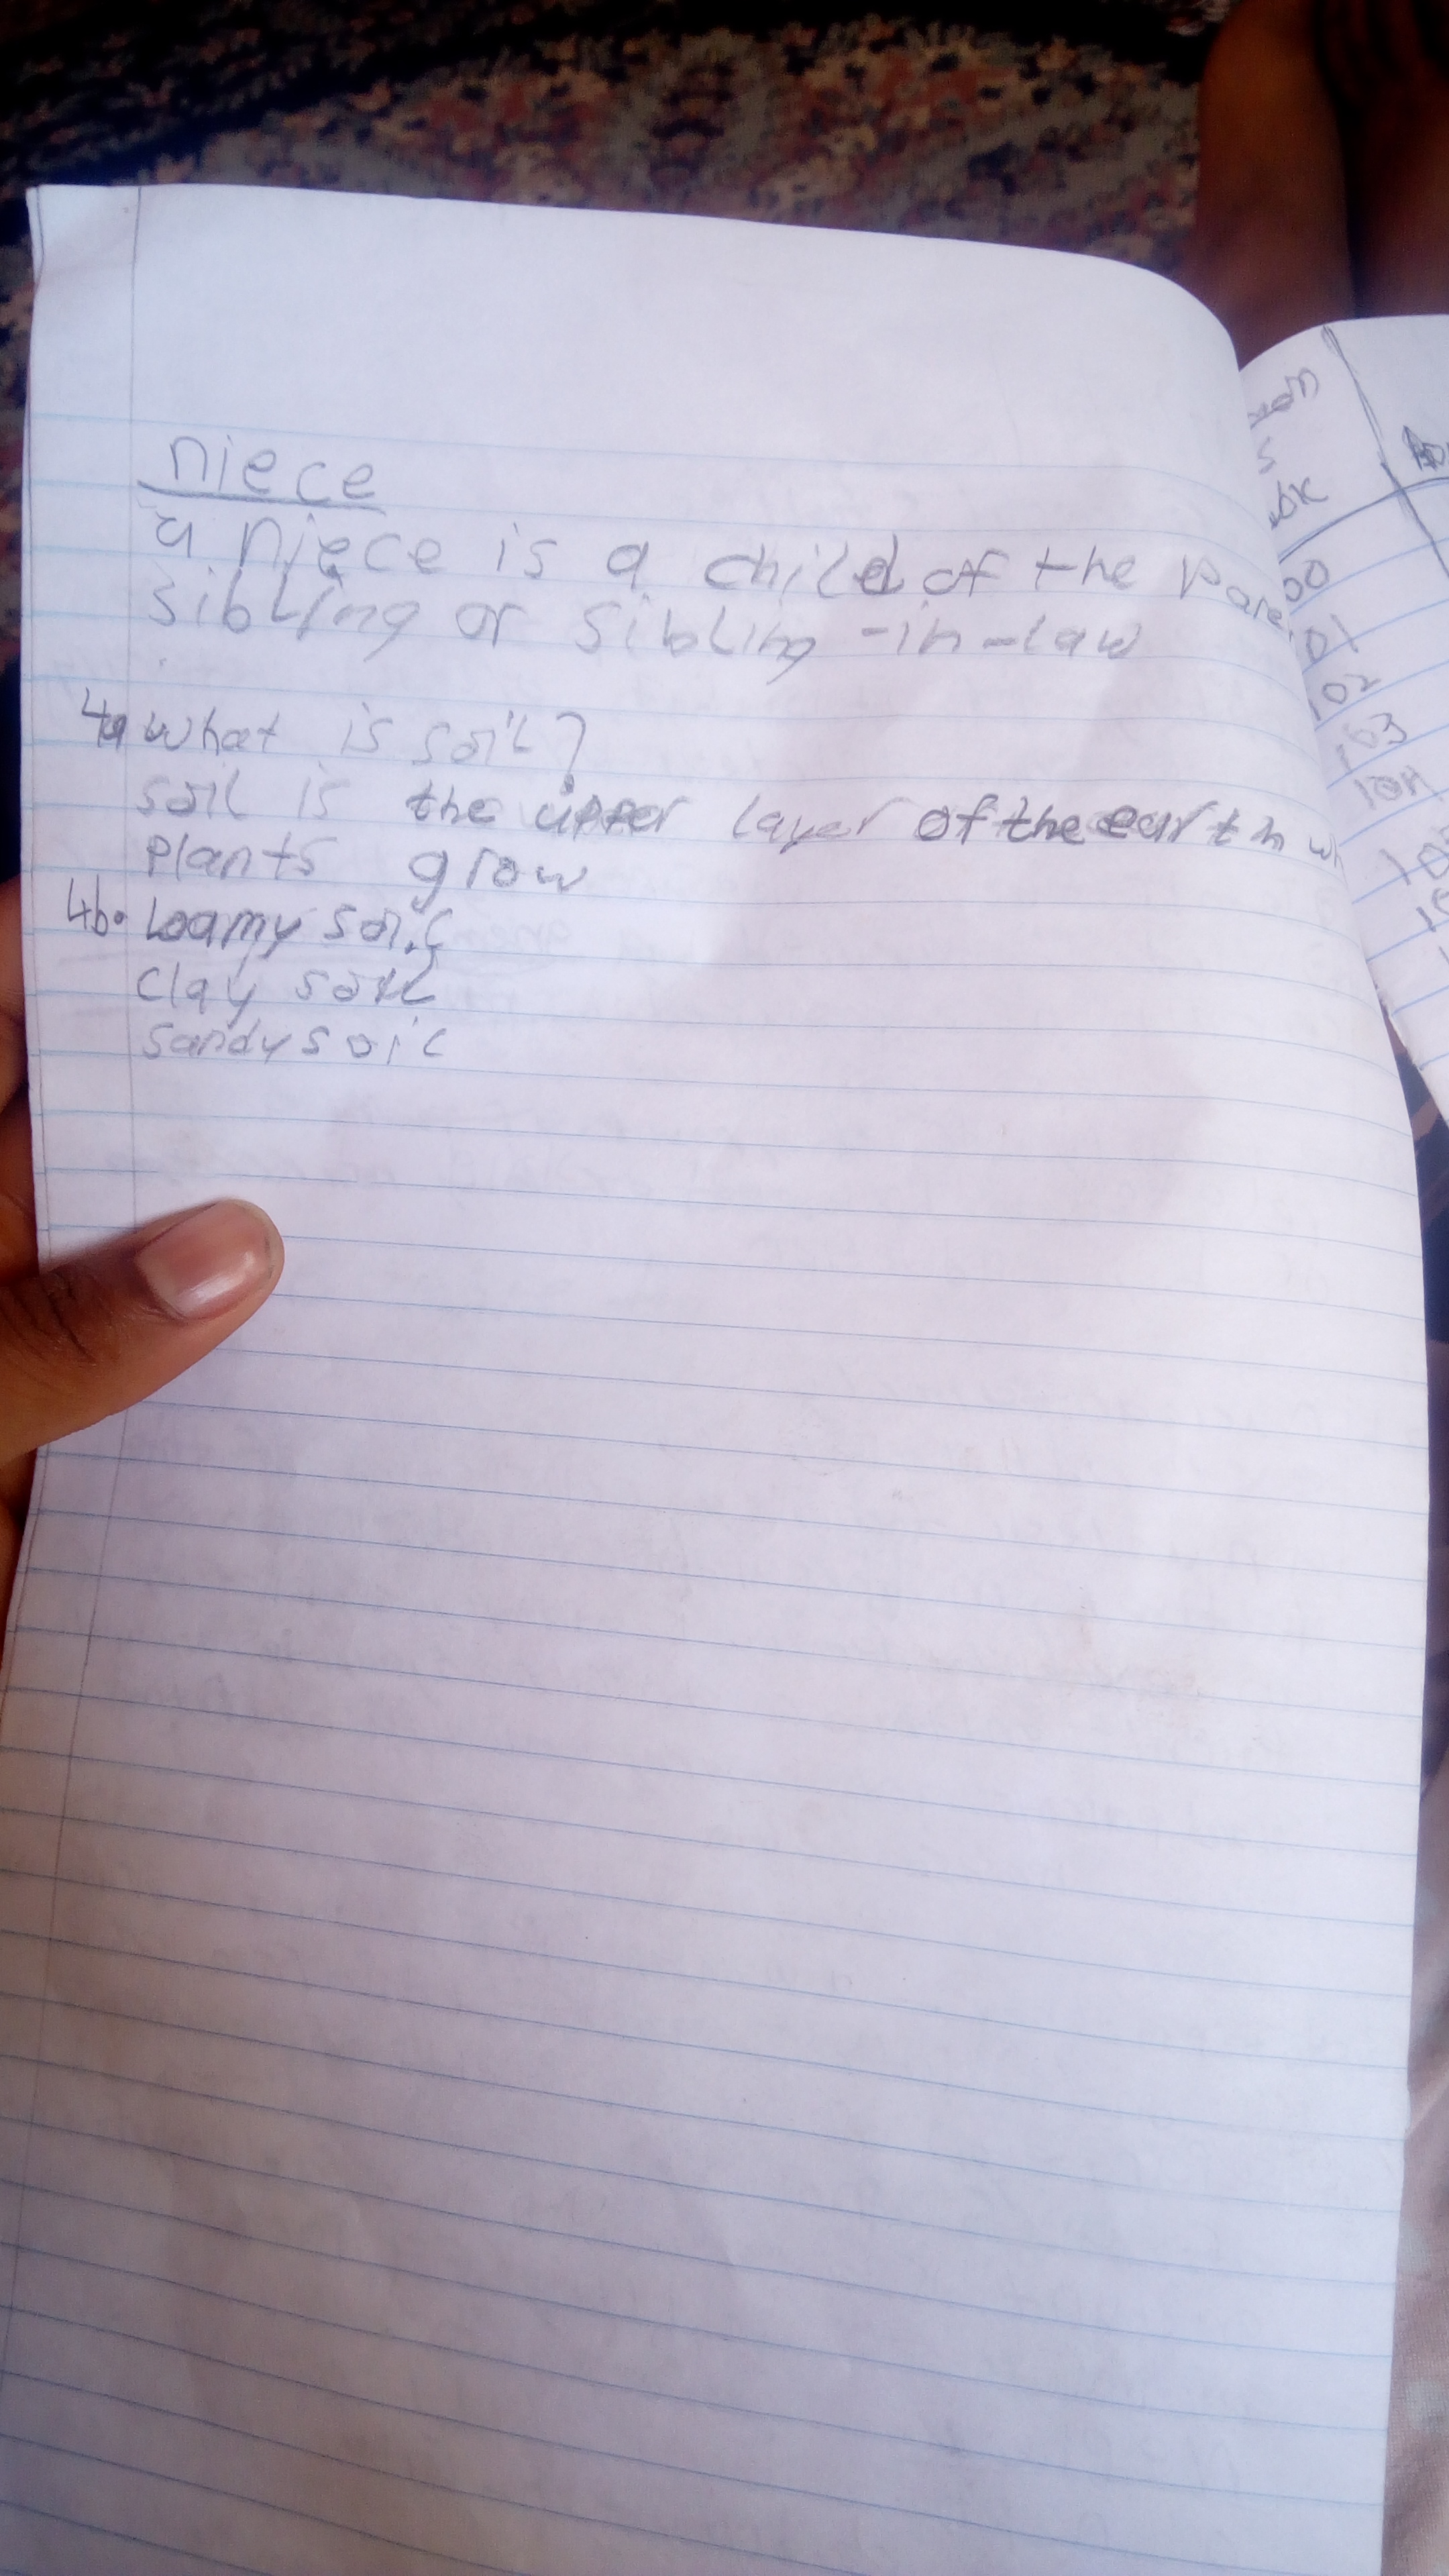 niece
a niece is a child of the
sibling or sibling-in-law
4a what is soil?
soil is the upper layer of the earth
plants grow
4b. Loamy soil
clay soil
sandy soil
00
101
102
103
104